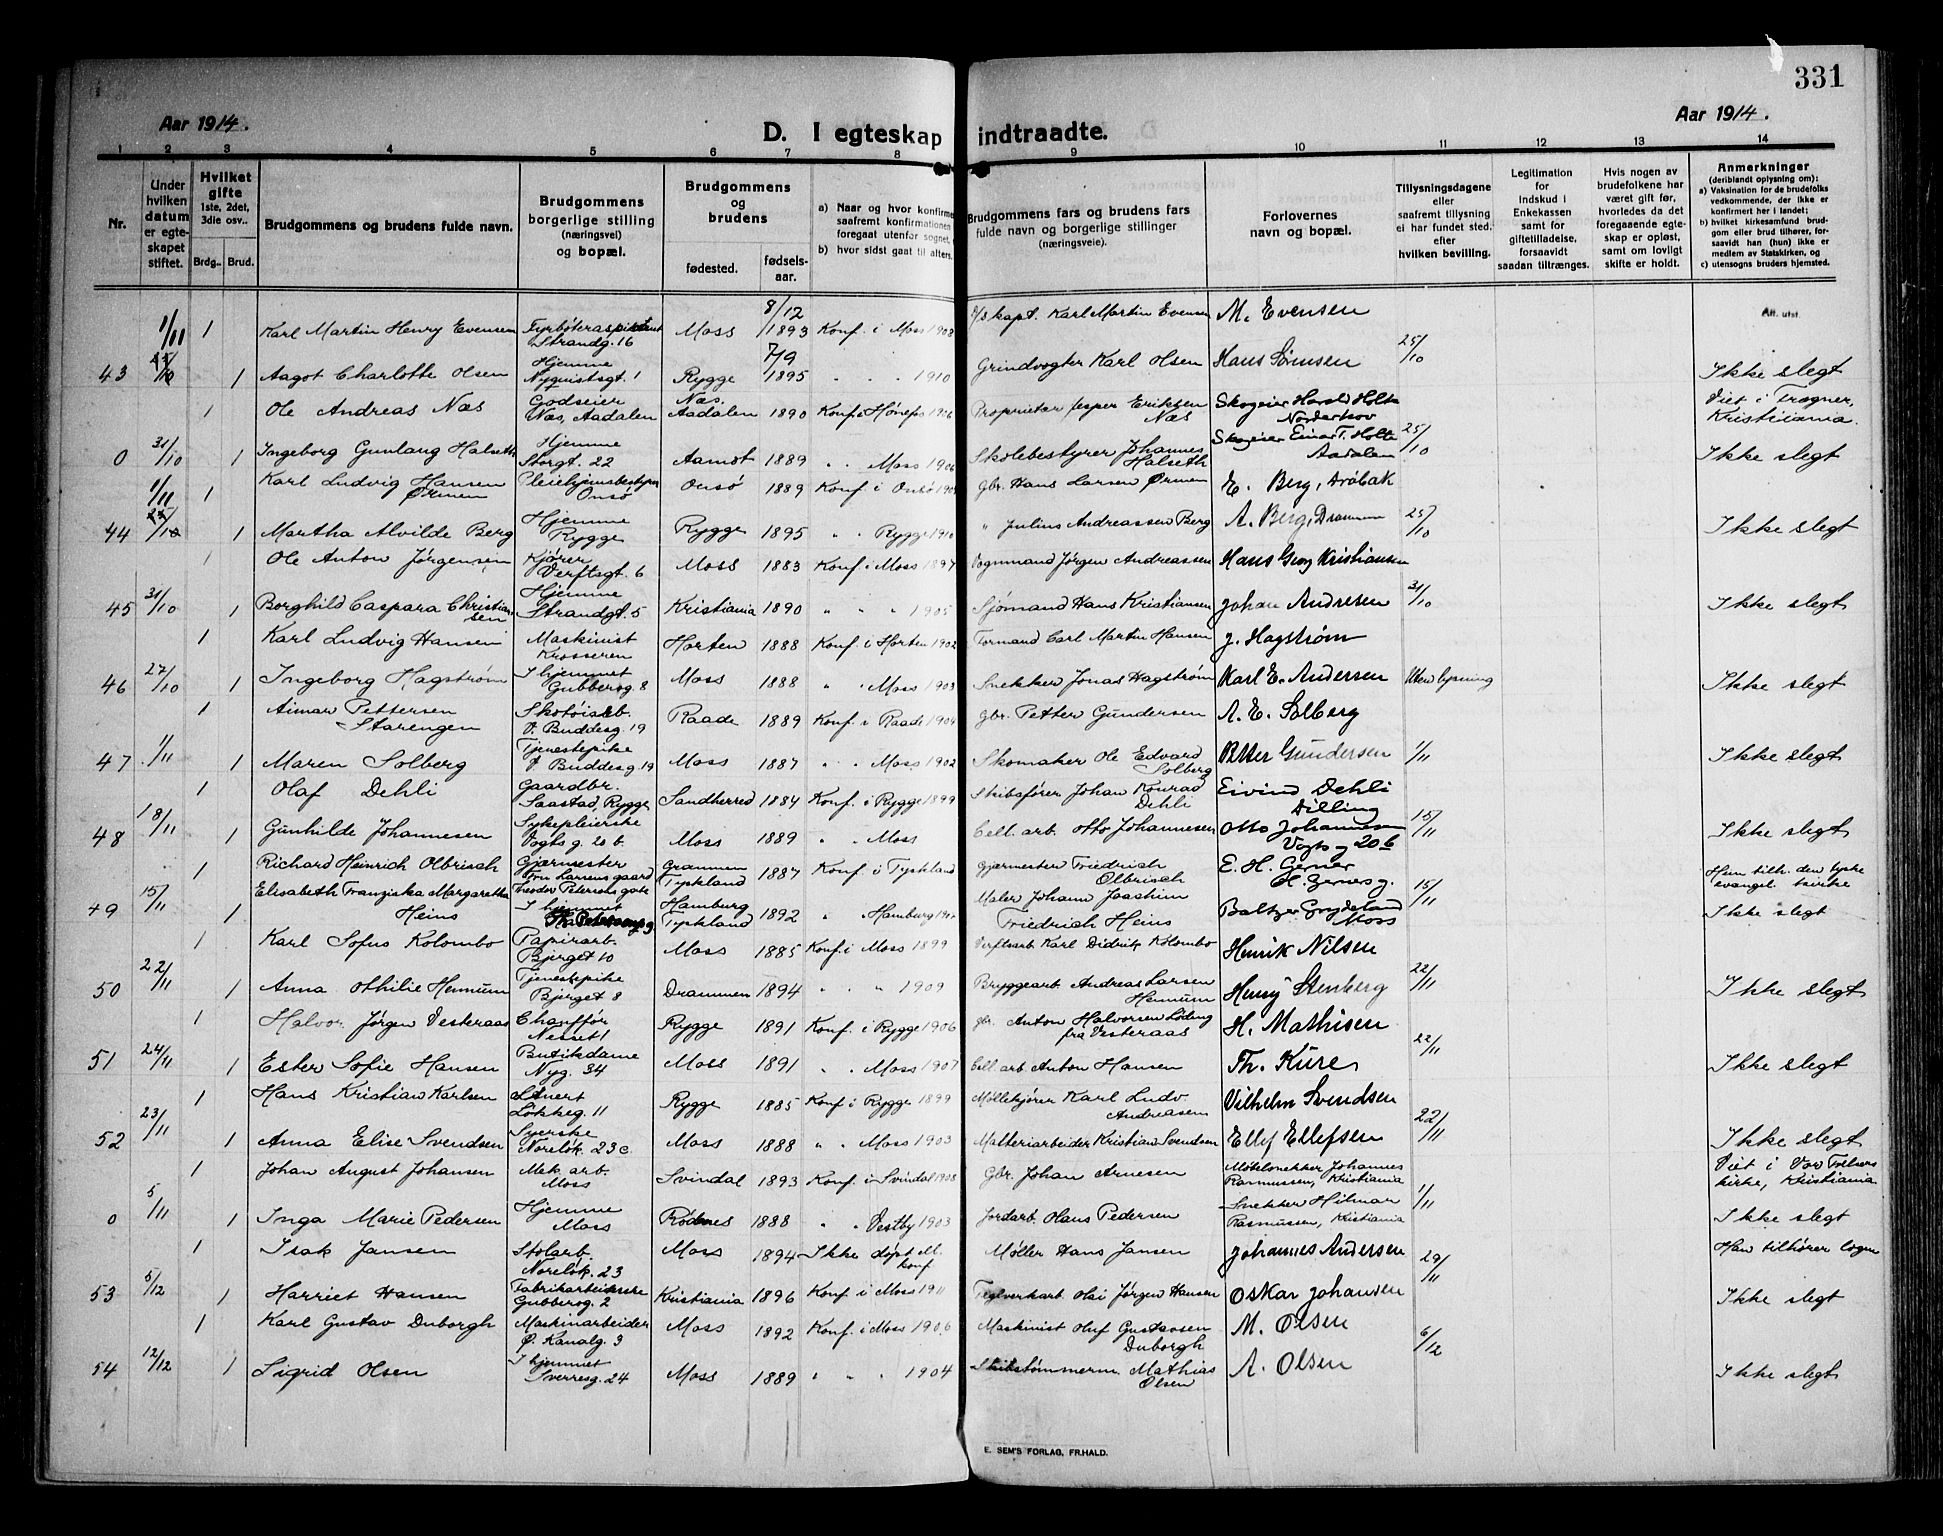 331
Aar 1914.
Aar 1914.
D. I egteskap indtraadte.
1 2 3 4 5 6 7 8 9 10 11 12 13 14
Nr.
Under hvilken datum er egteskapet stiftet.
Hvilket gifte 1ste, 2det, 3die osv..
Brdg.. Brud.
Brudgommens og brudens fulde navn.
Brudgommens borgerlige stilling (næringsvei) og bopæl.
Brudgommens og brudens
fødested.
fødselsaar.
a) Naar og hvor konfirme
saafremt konfirmationen
foregaat utenfor sognet,
b) hvor sidst gaat til alters.
Brudgommens fars og brudens fars fulde navn og borgerlige stillinger (næringsveie).
Forlovernes navn og bopæl.
Tillysningsdagene eller saafremt tillysning ei har fundet sted. efter hvilken bevilling.
Legitimation for Indskud i Enkekassen samt for giftetilladelse, forsaavidt saadan tiltrænges.
Hvis nogen av brudefolkene har været gift før, hvorledes da det foregaaende egteskap er opløst, samt om lovligt skifte er holdt.
Anmerkninger (deriblandt oplysning om): a) Vaksination for de brudefolks vedkommende, der ikke er konfirmert her i landet; b) hvilket kirkesamfund brudgom eller brud tilhører, forsaavidt han (hun) ikke er medlem av Statskirken, og c) utensogns bruders hjemsted.
1/11 1 Karl Martin Henry Evensen Strandg. 16 Moss 8/12 1893 Konf. i Moss 1908 Karl Martin Evensen M. Evensen Att. utst.
43 1 Aagot Charlotte Olsen Hjemme Nyquistsgt. 1 Rygge 7/9 1895 " " 1910 Grindvogter Karl Olsen 25/10 Ikke slegt
1 Ole Andreas Næs Godseier Næs, Aadalen Næs. Aadalen 1890 Konf. i Hønefos 1906 Proprietær Jesper Eriksen Næs Skogeier Harald Holte Norderhov Viet i Frogner, Kristiania.
0 31/10 1 Ingeborg Gunlaug Halseth Hjemme Storgt. 22 Aamot 1889 " " Moss 1906 Skolebestyrer Johannes Halseth Skogeier Einar T. Holte Aadalen 25/10 Ikke slegt
1/11 1 Karl Ludvig Hansen Ørmen Pleiehjemsbestyrer Onsø Onsø 1889 Konf. i Onsø Gbr. Hans Larsen Ørmen E. Berg, Drøbak
44 1 Martha Alvilde Berg Hjemme Rygge Rygge 1895 " " Rygge 1910 " Julius Andreassen Berg A. Berg, Drammen 25/10 Ikke slegt
1 Ole Anton Jørgensen Kjører Verftsgt. 6 Moss 1883 Konf. i Moss 1897 Vognmand Jørgen Andreassen Hans Georg Kristiansen
45 31/10 1 Borghild Caspara Christiansen Hjemme Strandgt. 5 Kristiania 1890 " " " 1905 Sjømand Hans Kristiansen Johan Andresen 31/10 Ikke slegt
1 Karl Ludvig Hansen Maskinist Krosseren Horten 1888 Konf. i Horten 1902 Formand Carl Martin Hansen J. Hagstrøm
46 27/10 1 Ingeborg Hagstrøm I hjemmet Gubberog. 8 Moss 1888 " " Moss 1903 Snekker Jonas Hagstrøm Karl E. Andersen Uten lysning Ikke slegt
1 Aimar Pettersen Starengen V. Buddesg. 19 Raade 1889 Konf. i Raade 1904 Gbr. Petter Gundersen A. E. Solberg
47 1/11 1 Maren Solberg Tjenestepike V. Buddesg. 19 Moss 1887 " " Moss 1902 Skomaker Ole Edvard Solberg Petter Gundersen 1/11 Ikke slegt
1 Olaf Dehli Gaardbr. Saastad, Rygge Sandherred 1884 Konf. i Rygge 1899 Skibsfører Johan Konrad Dehli Eivind Dehli Dilling
48 18/11 1 Gunhilde Johannesen Sykepleierske Vogts g. 20 b. Moss 1889 " " Moss Cell. arb. Otto Johannesen Otto Johannesen Vogts g 20 b 15/11 Ikke slegt
1 Richard Heinrich Olbrisch Gjærmester Fru Larsens gaard Theodor Petersens gate Tyskland 1887 Konf. i Tyskland Gjærmester Friedrich Olbrisch E. H. Gerner H. Gernes g. Hun tilh. den tyske evangel. kirke
49 15/11 1 Elisabeth Franziska Margaretha Heins I hjemmet Hamburg Tyskland 1892 " Hamburg Maler Johann Joachim Friedrich Heins Baltzer Grydeland Moss 15/11 Ikke slegt
1 Karl Sofus Kolombo Papirarb. Bjerget 10 Moss 1885 Konf. i Moss 1899 Verftsarb. Karl Didrik Kolombo Henrik Nilsen
50 22/11 1 Anna Othilie Hennum Tjenestepike Bjerget 8 Drammen 1894 " " " 1909 Bryggearb Andreas Larsen Hennum Henry Stenberg 22/11 Ikke slegt
1 Halvor Jørgen Vesteraas Chauffør Nesset 1 Rygge 1891 Konf. i Rygge 1906 Gbr. Anton Halvorsen Løding fra Vesteraas H. Mathisen
51 24/11 1 Ester Sofie Hansen Butikdame Nyg. 34 Moss 1891 " " Moss 1907 Cell. arb Anton Hansen Th. Kure 22/11 Ikke slegt
1 Hans Kristian Karlsen Løkkeg. 11 Rygge 1885 Konf i Rygge 1899 Møllekjører Karl Ludv. Andreasen Vilhelm Svendsen
52 23/11 1 Anna Elise Svendsen Syerske Noreløk. 23 c. Moss 1888 " " Moss 1903 Malteriarbeider Kristian Svendsen Ellef Ellefsen 22/11 Ikke slegt
1 Johan August Johansen Mek. arb. Moss Svindal 1893 Konf. i Svindal 1908 Gbr. Johan Arnesen Møbelsnekker Johannes Rasmussen, Kristiania Viet i Vor Frelsers kirke, Kristiania
0 5/11 1 Inga Marie Pedersen Hjemme Moss Rødenes 1888 " " Vestby 1903 Jordarb. Hans Pedersen Snekker Hilmar Rasmussen, Kristiania 1/11 Ikke slegt
1 Isak Jansen Stolarb. Noreløk. 23 Moss 1894 Ikke døpt el. konf Møller Hans Jansen Johannes Andersen Han tilhører logen
53 5/12 1 Harriet Hansen Fabrikarbeiderske Gubberog. 2 Kristiania 1896 Konf. i Moss 1911 Teglverkarb. Olai Jørgen Hansen Oskar Johansen 29/11 Ikke slegt
1 Karl Gustav Duborgh Maskinarbeider Ø. Kanalg. 3 Moss 1892 Konf. i Moss 1906 Maskinist Oluf Gustavsen Duborgh M. Olsen
54 12/12 1 Sigrid Olsen I hjemmet Sverresg. 24 Moss 1889 " " " 1904 Skibstømmerm Mathias Olsen A. Olsen 6/12 Ikke slegt
E. SEM'S FORLAG, FR.HALD.